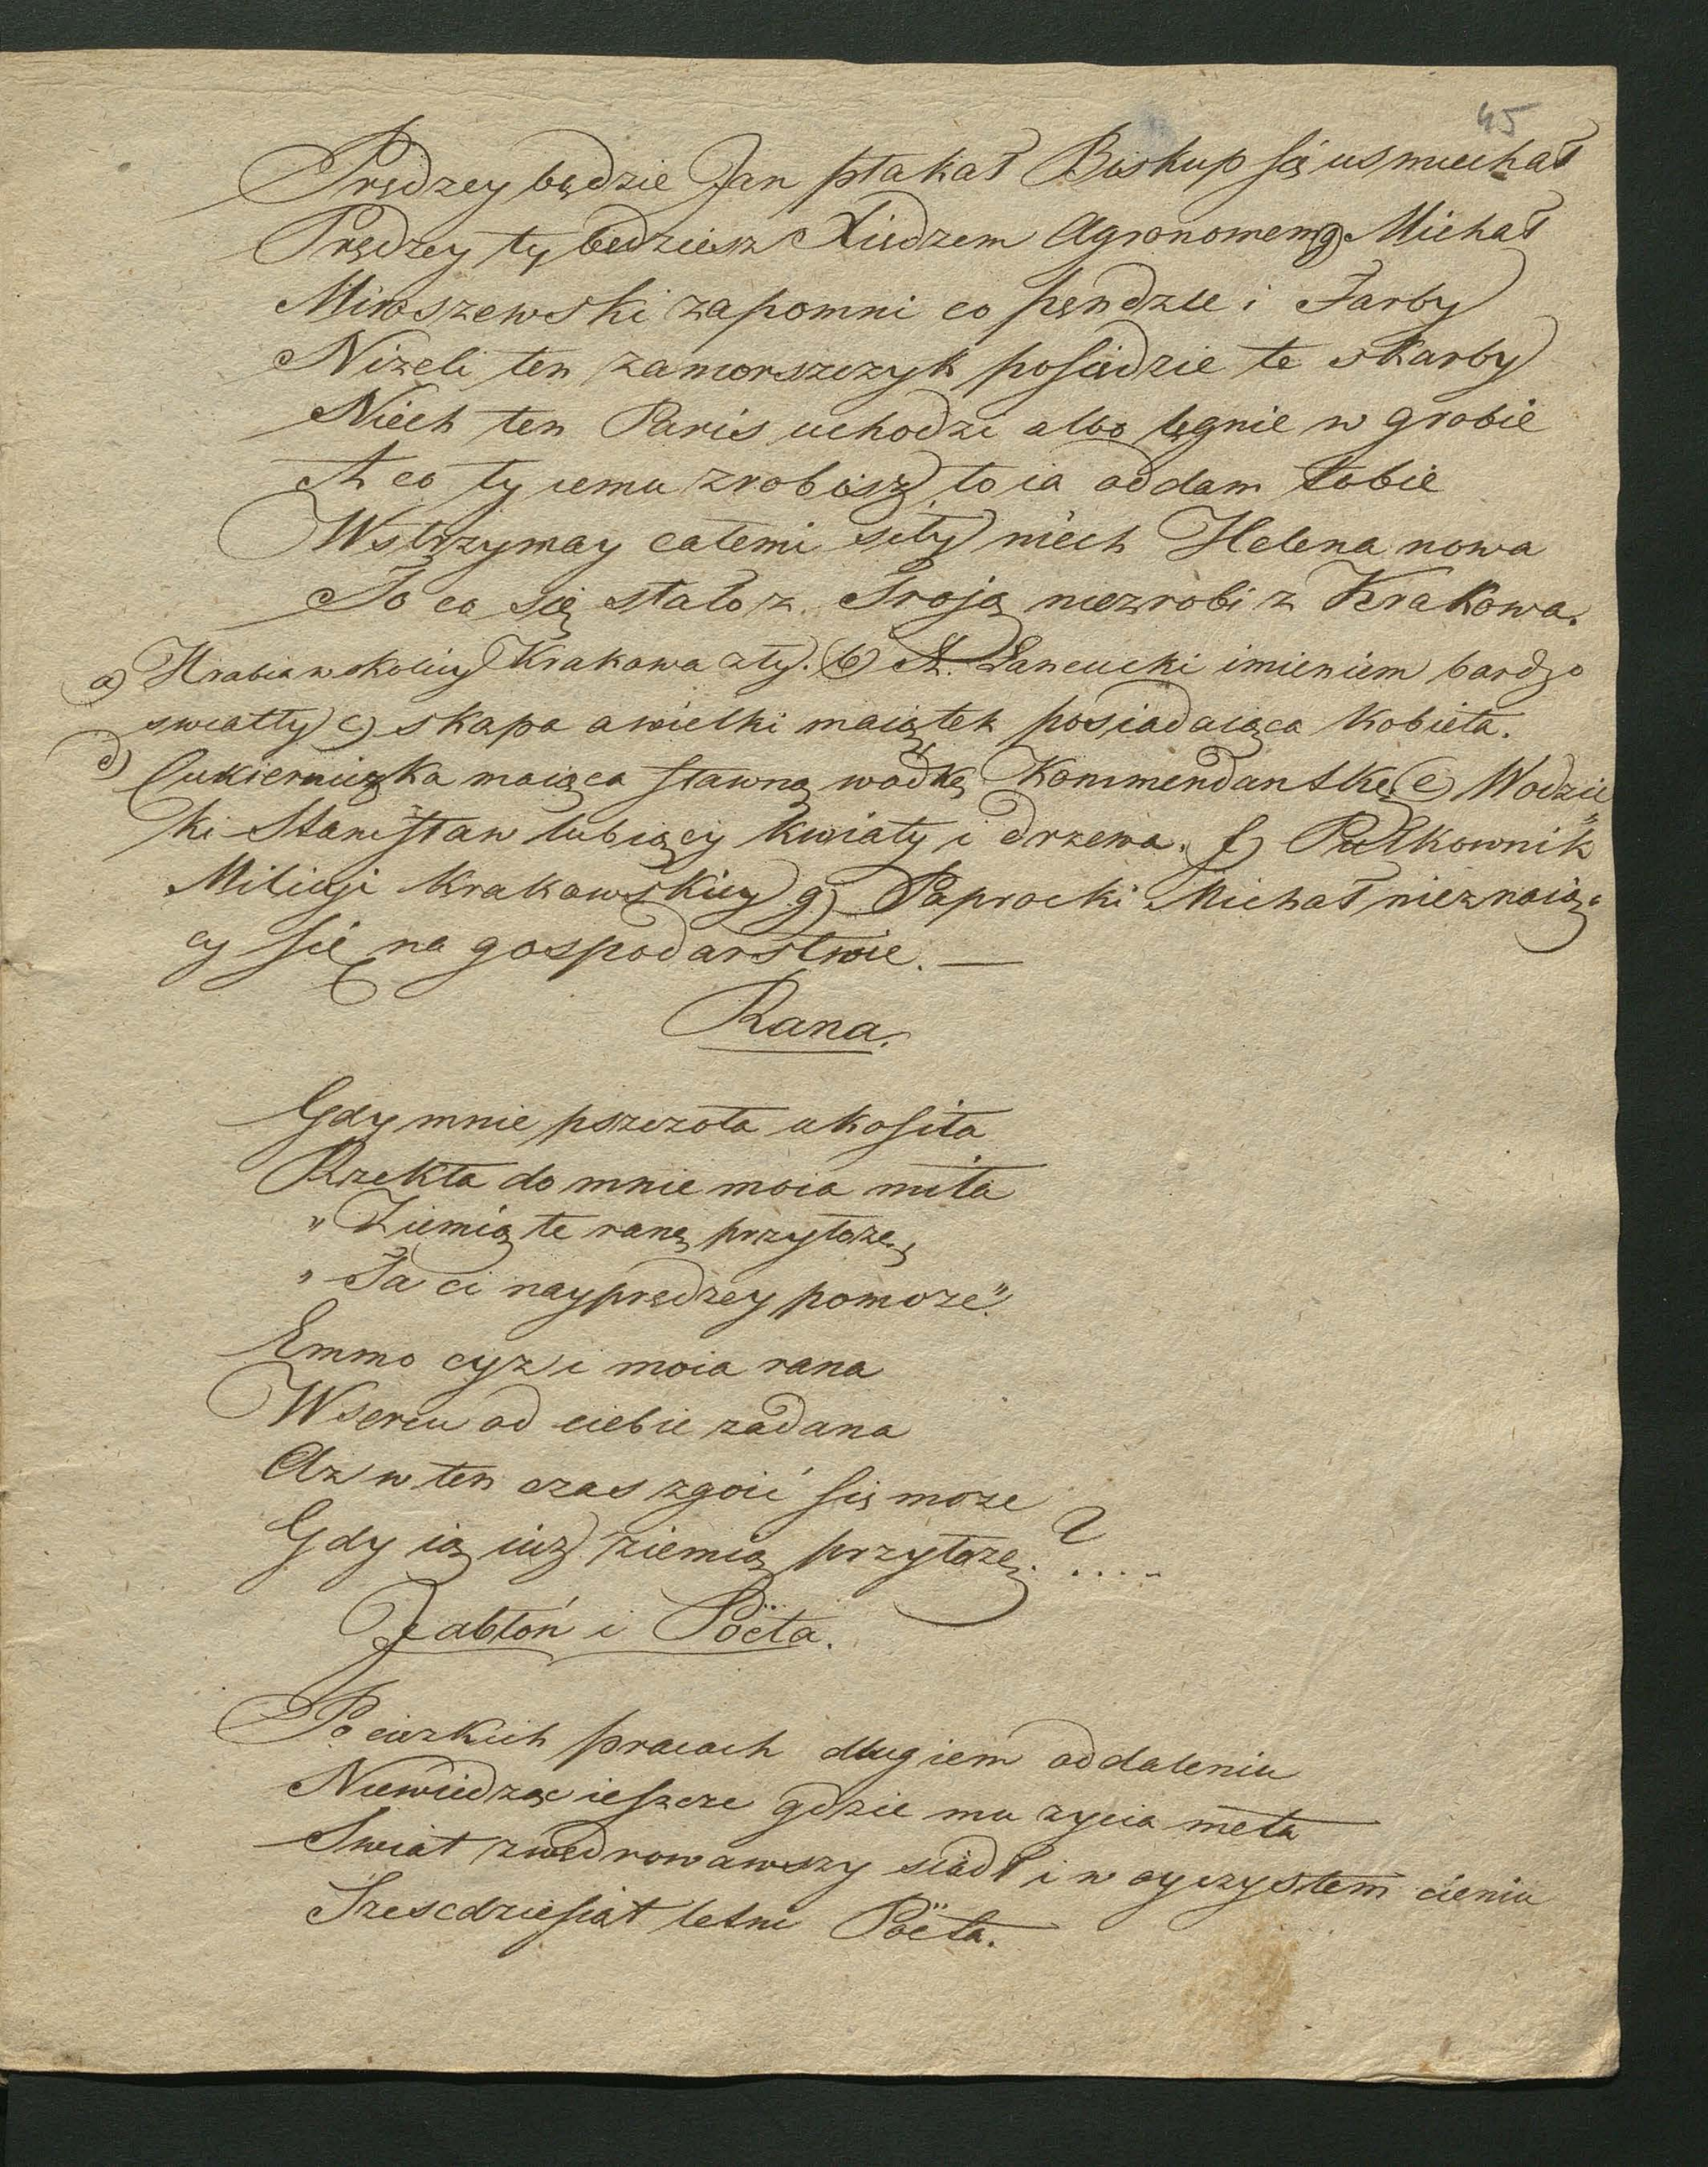 45
Prędzey będzie Jan płakał Biskup się usmiechał
Prędzey ty będziesz Xiędzem Agronomem g) Michał
Miroszewski zapomni co pęndzle i Farby
Niżeli ten zamorszczyk posiędzie te skarby
Niech ten Paris uchodzi albo lęgnie w grobie
A co ty iemu zrobisz to ia oddam tobie
Wstrzymay całemi siły niech Helena nowa
To co się stało z Troją niezrobi z Krakowa.
a) Hrabia w okolicy Krakowa zły. b) X. Łancucki imieniem bardzo
swiatły c) skąpa a wielki maiątek posiadaiąca kobieta.
d) Cukierniczka maiąca sławną wodkę Kommendantkę. e) Wodzic„
ki Stanisław lubiący kwiaty i drzewa. f) Pułkownik
Milicji Krakowskiey g) Paprocki Michał nieznaią„
cy się na gospodarstwie. —
Rana.
Gdy mnie pszczoła ukosiła
Rzekła do mnie moia miła
„Ziemią te ranę przyłożę
„Ta ci nayprędzey pomoże".
Emmo czyż i moia rana
W sercu od ciebie zadana
Aż w ten czas zgoić się może
Gdy ią iuż ziemią przyłożę. ?....
Jabłoń i Poëta.
Po cięzkich pracach długiem oddaleniu
Niewiedząc ieszcze gdzie mu zycia meta
Swiat zwędrowawszy siadł i w oyczystem cieniu
Szescdziesiąt letni Poëta.